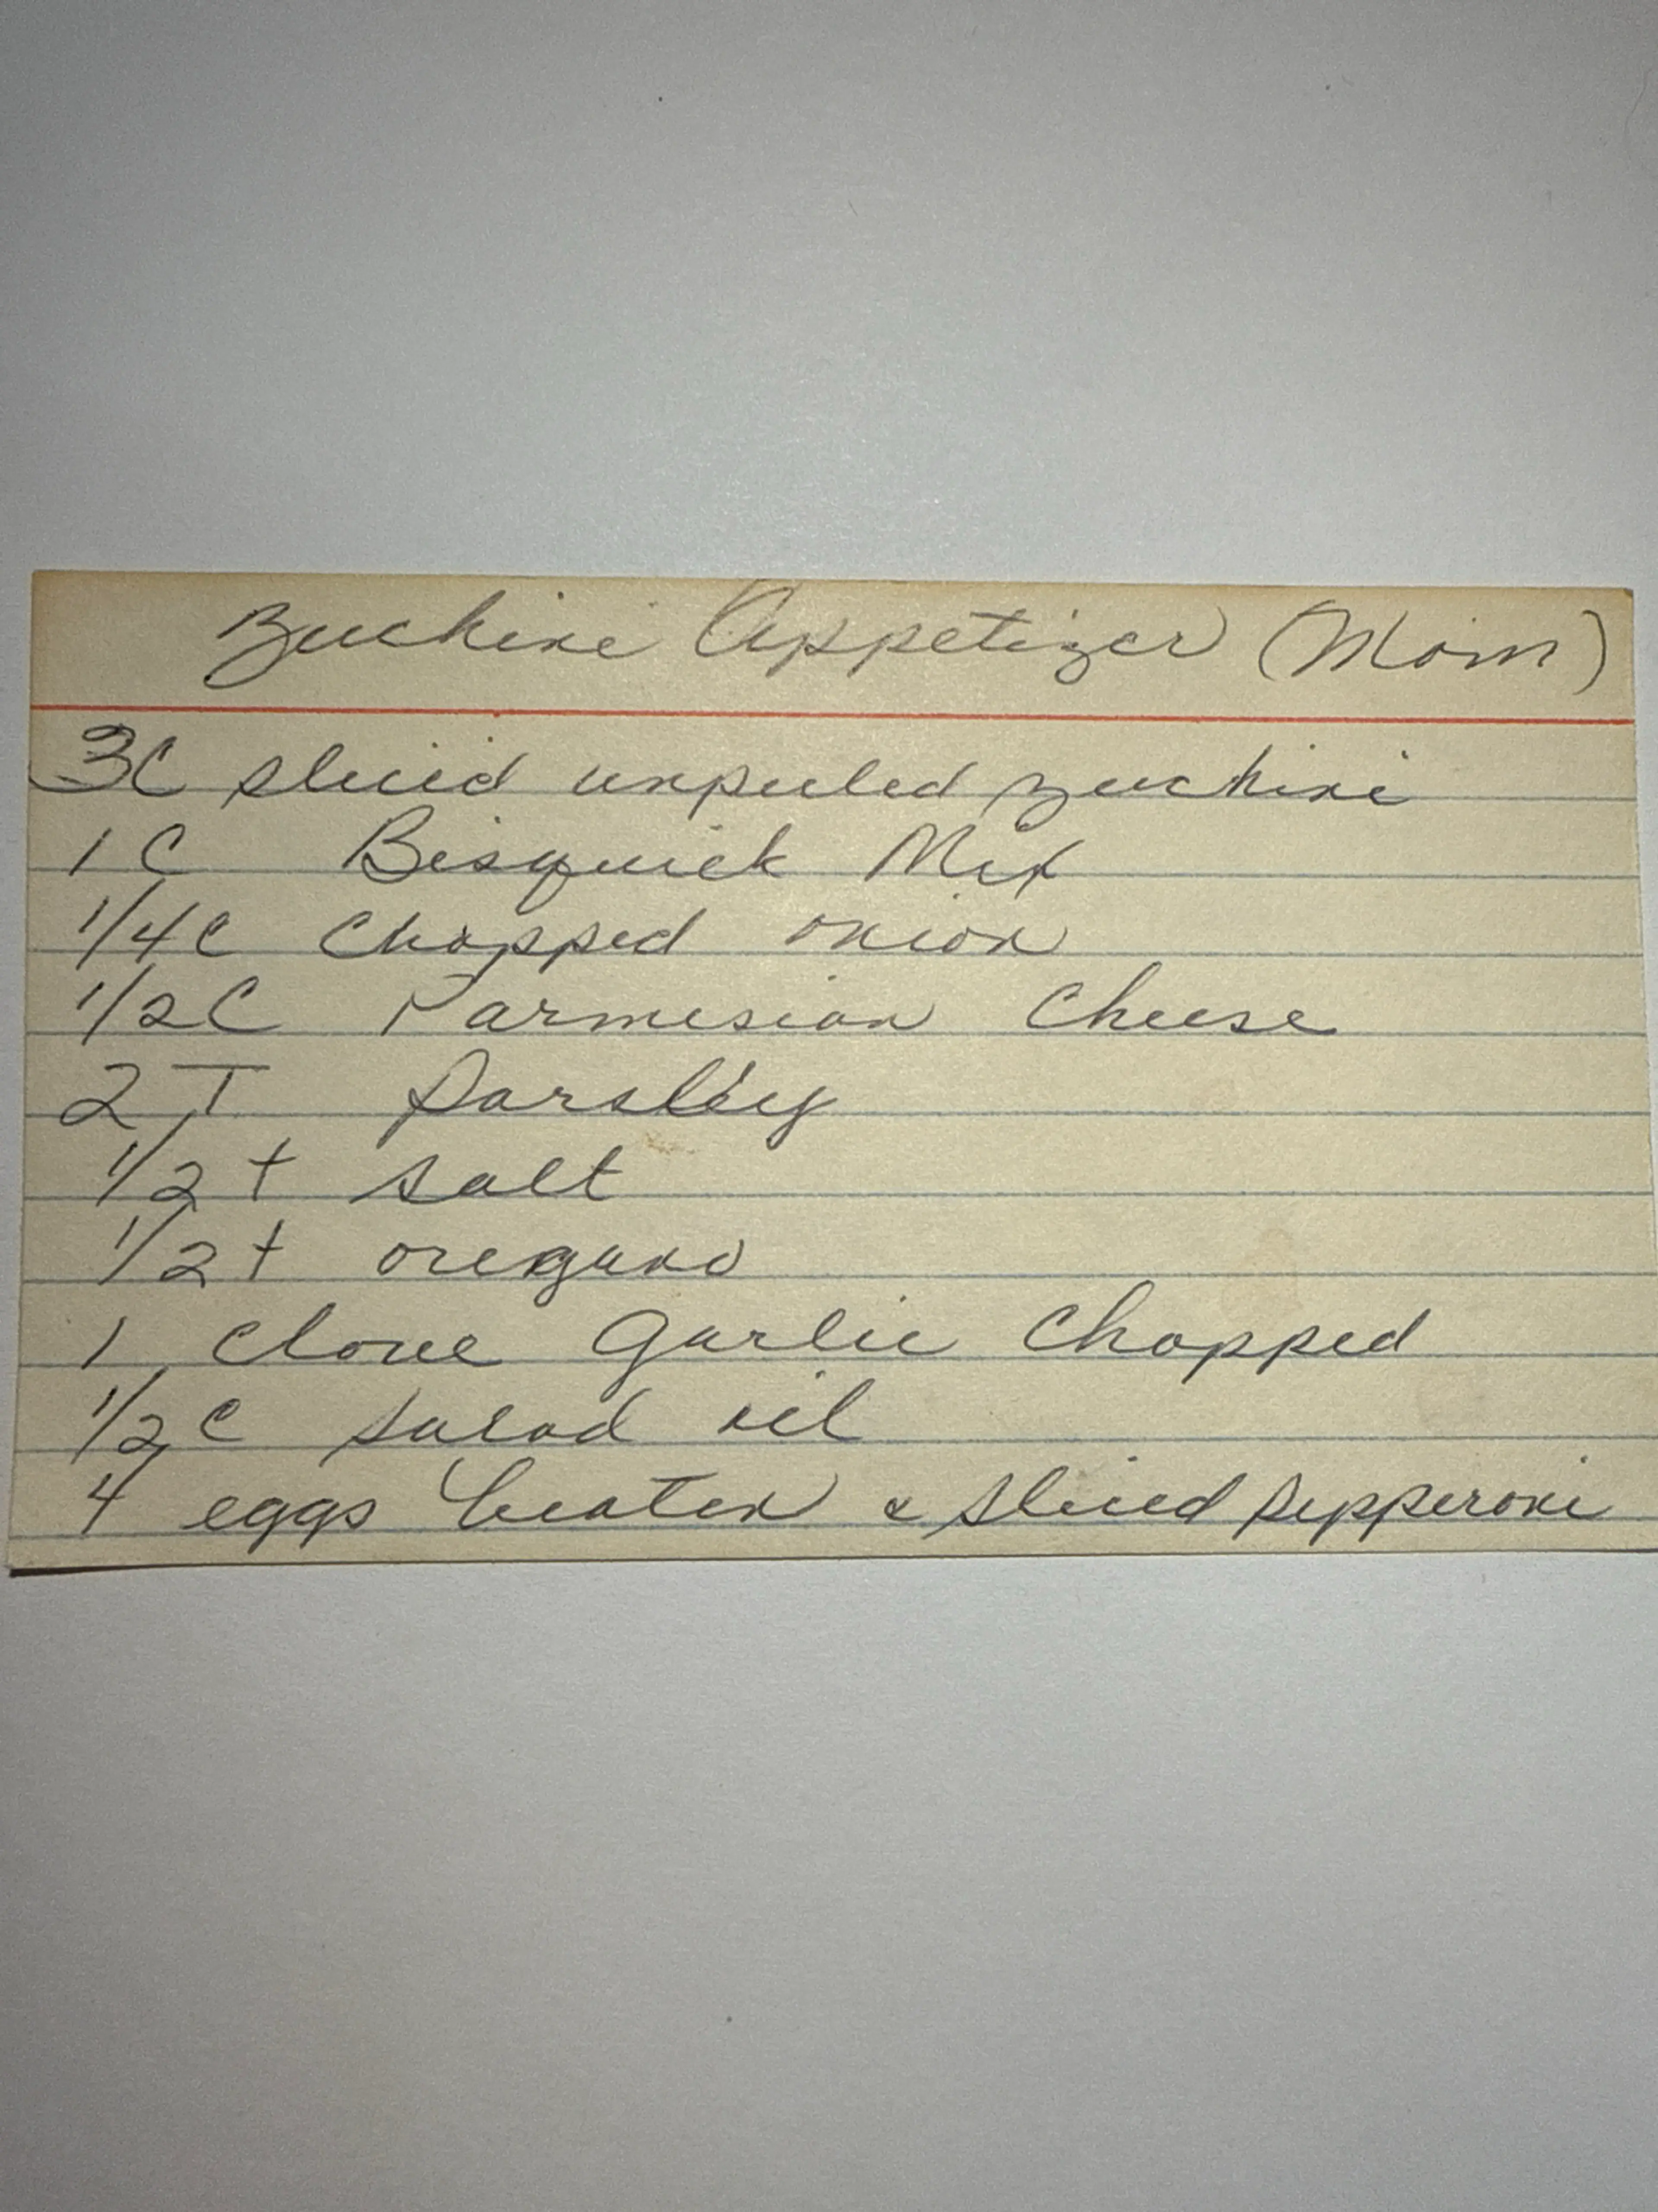 Zuchini Appetizer (Mom)
3C sliced unpeeled zuchini
1 C Bisquick Mix
1/4 C Chopped onion
1/2 C Parmesian Cheese
2 T Parsley
1/2 t salt
1/2 t oregano
1 Clove Garlic Chopped
1/2 C salad oil
4 eggs beaten & sliced pepperoni